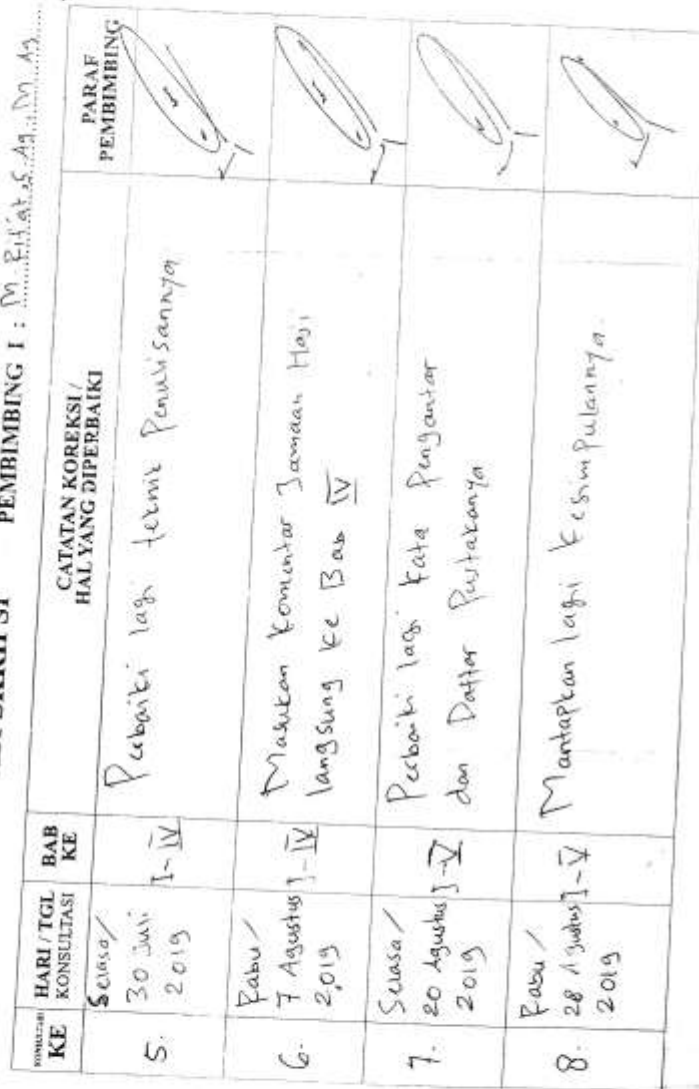 PEMBIMBING I : M. Rif'at, S.Ag., M.Ag
KONSULTASI KE
HARI / TGL KONSULTASI
BAB KE
CATATAN KOREKSI / HAL YANG DIPERBAIKI
PARAF PEMBIMBING
5.
Selasa /
30 Juli
2019
I - IV
Perbaiki lagi teknik Penulisannya
6.
Rabu /
7 Agustus
2019
I - IV
Masukan Komentar Jamaah Haji
langsung ke Bab IV
7.
Selasa /
20 Agustus
2019
I - V
Perbaiki lagi Kata Pengantar
dan Daftar Pustakanya
8.
Rabu /
28 Agustus
2019
I - V
Mantapkan lagi Kesimpulannya.